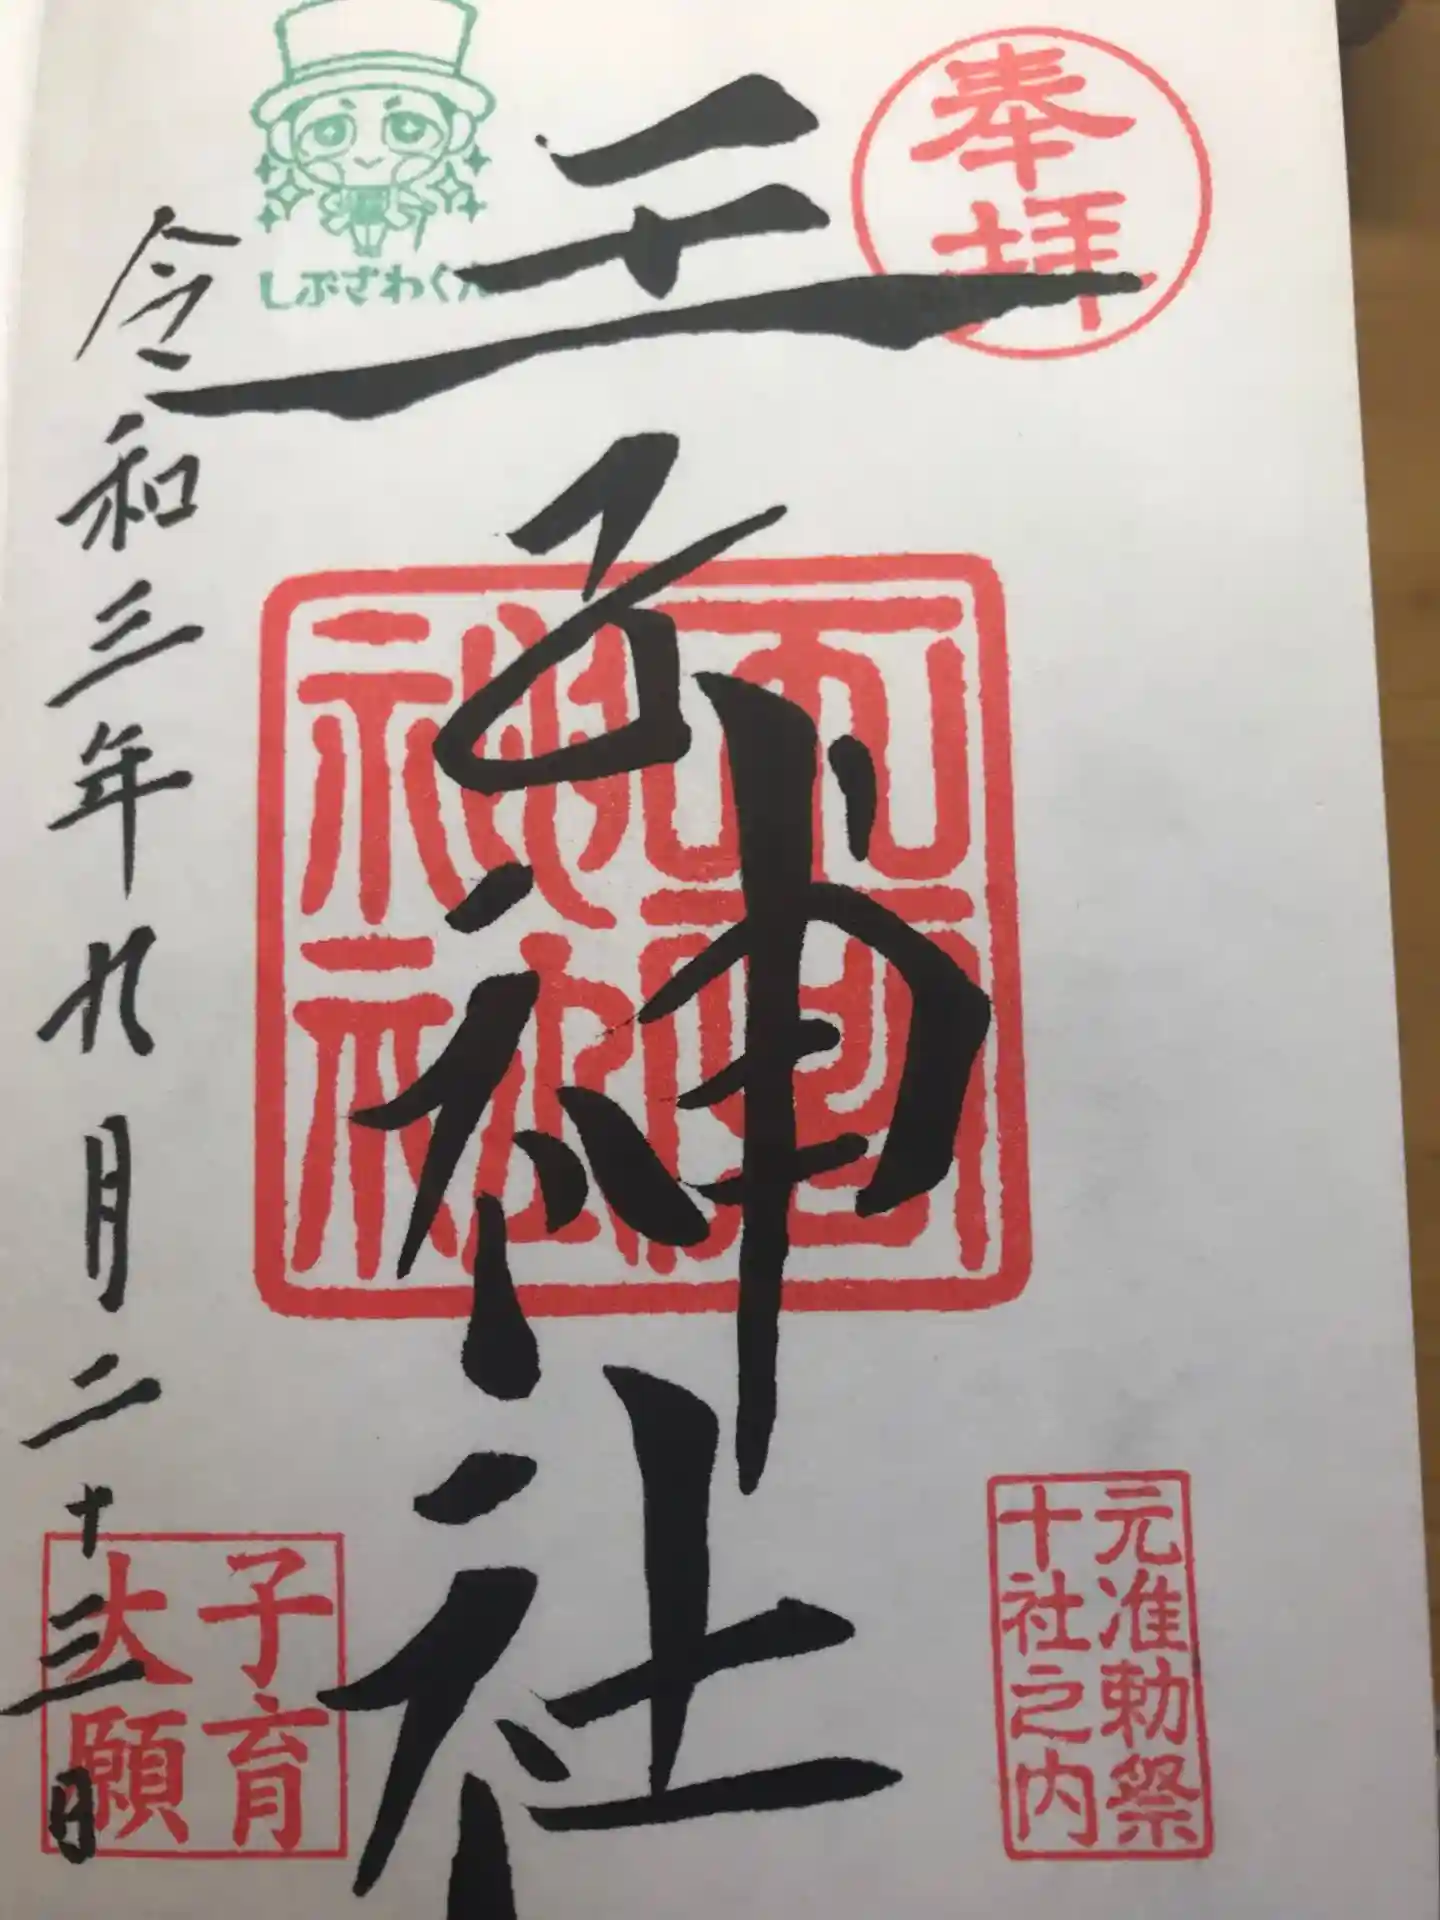 奉拝
元准勅祭
十社之内
王子神社
しぶざわくん
子育
大願
令和三年九月二十三日